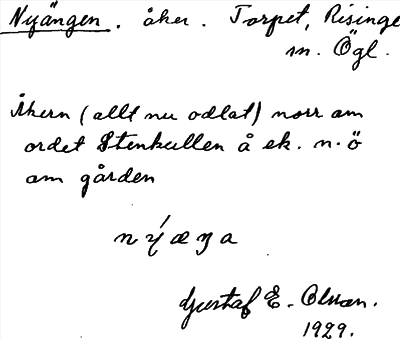 Nyängen. åker. Torpet, Risinge
sn. Ögl.
Åkern (allt nu odlat) norr om
ordet Stenkullen å ek. n. ö
om gården
Gustaf E. Olsson.
1929.